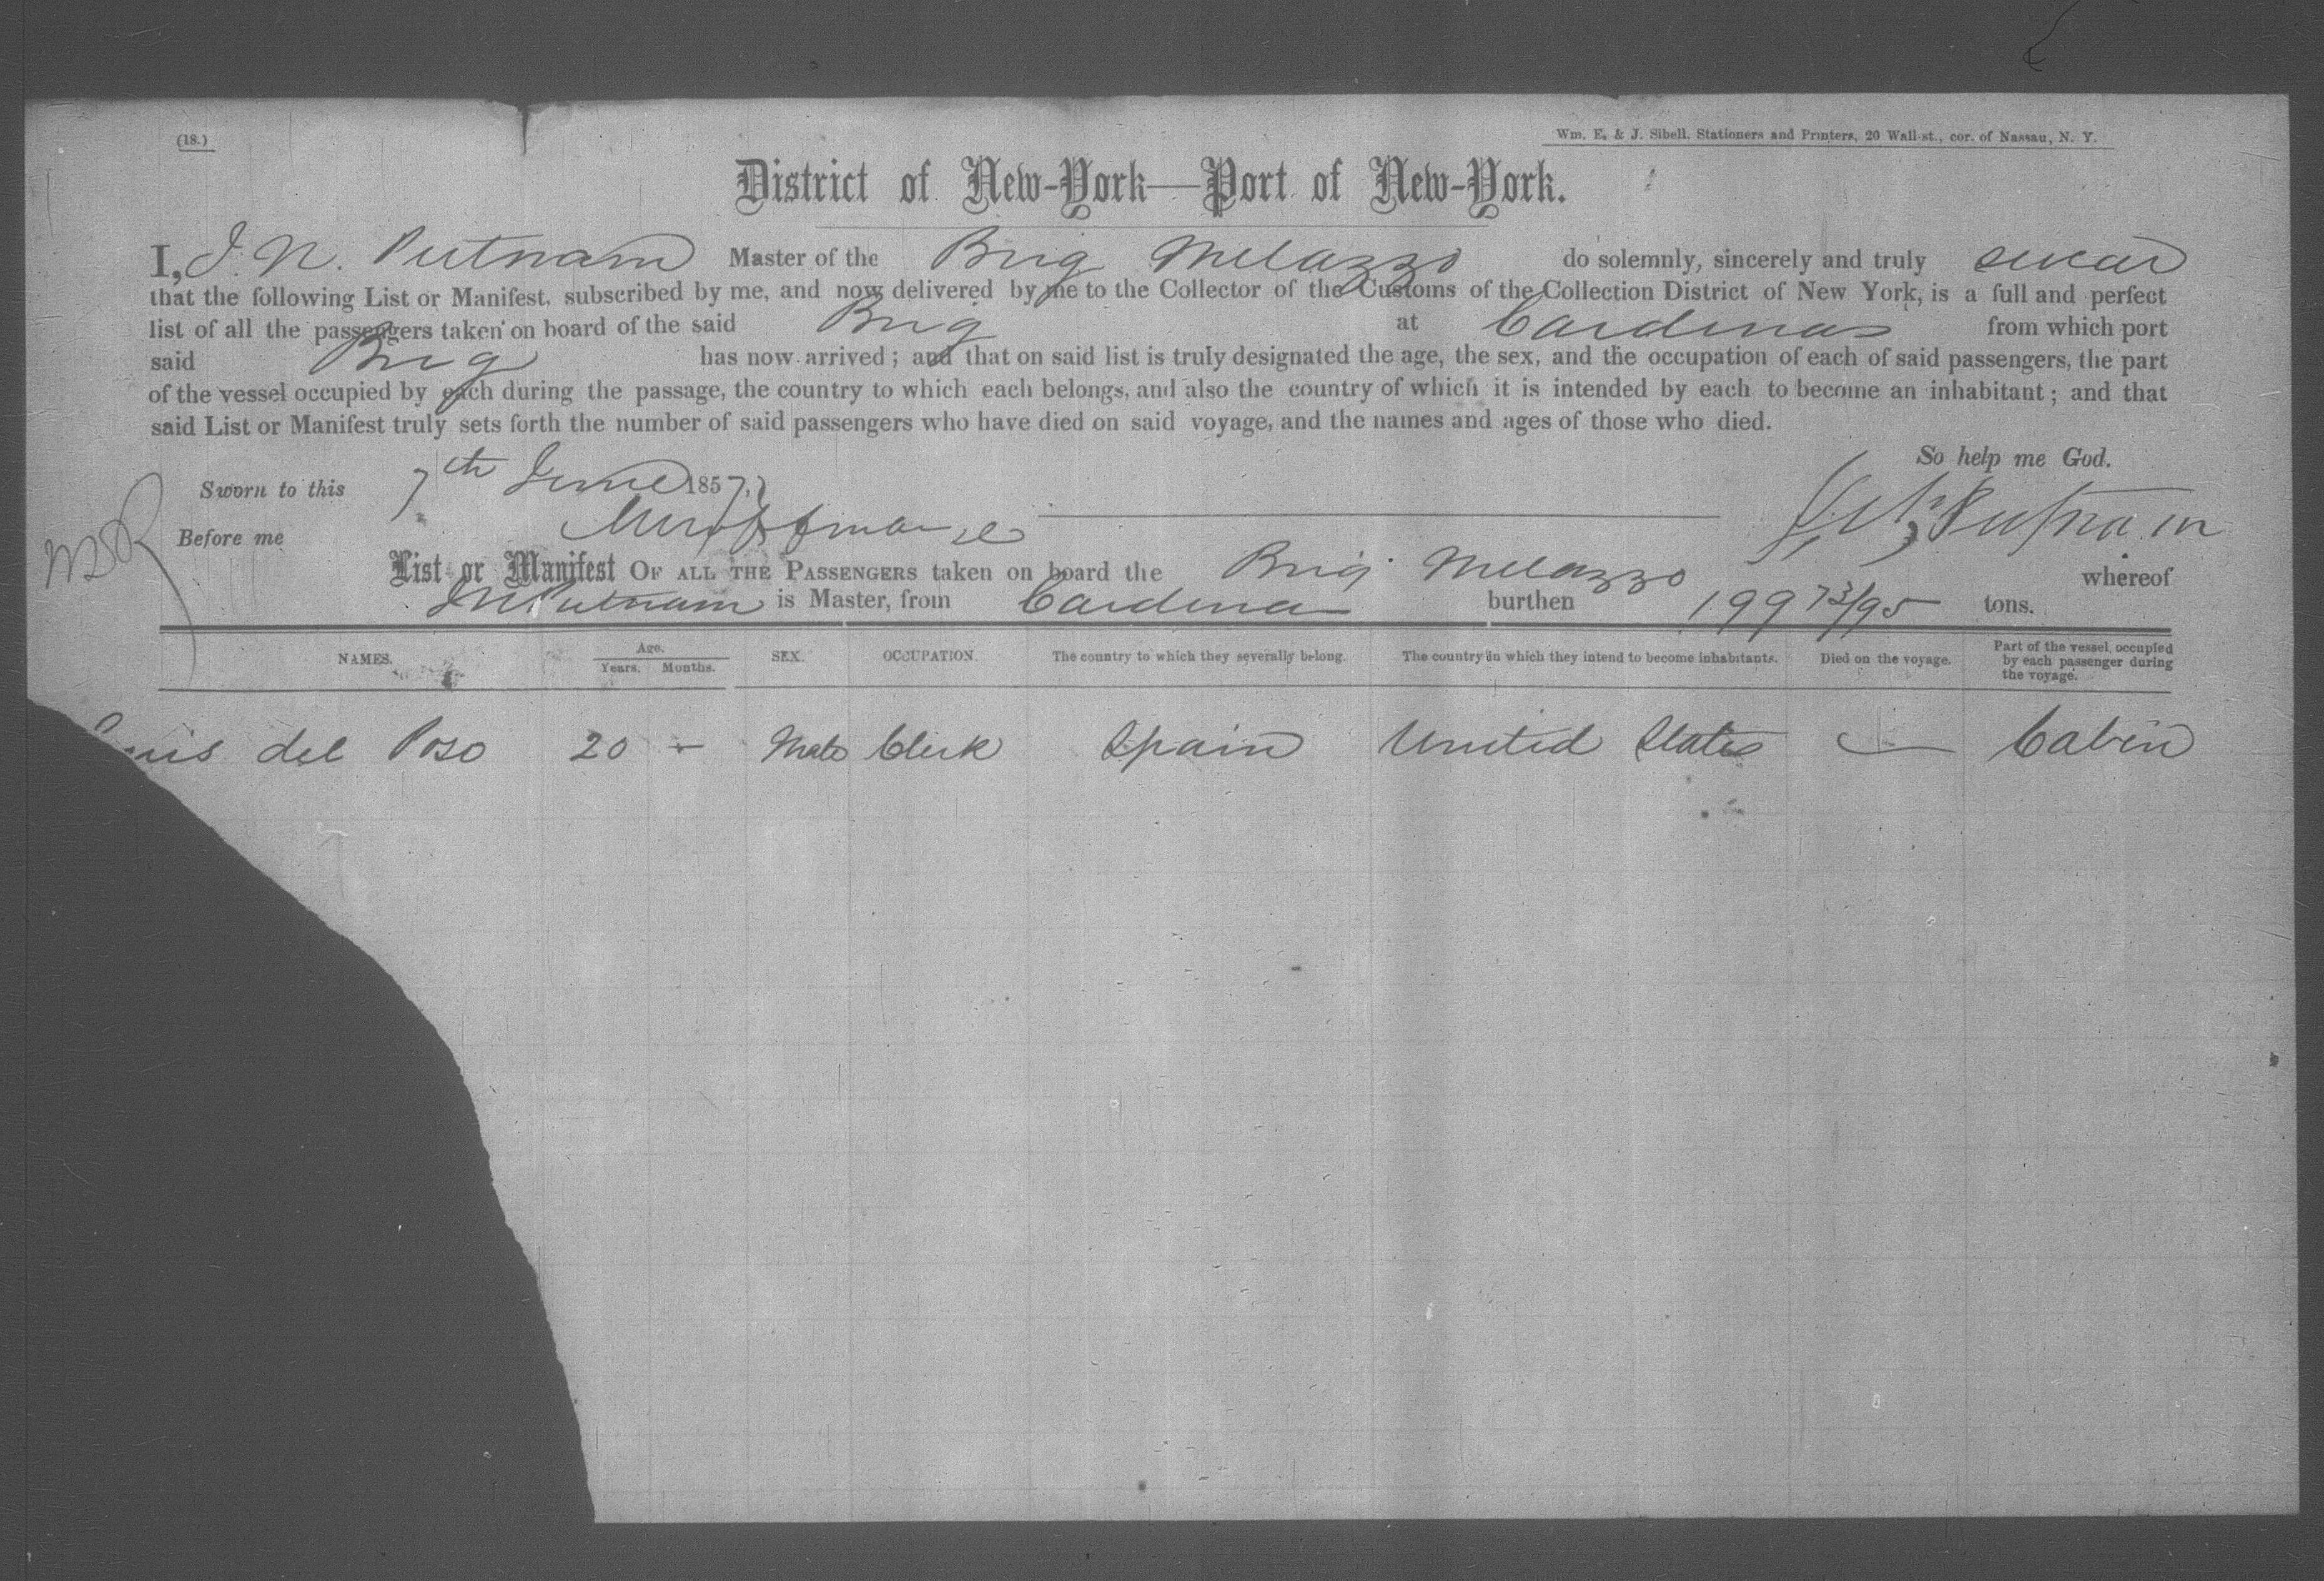 (18.)
Wm. E. & J. Sibell, Stationers and Printers, 20 Wall-st., cor. of Nassau, N. Y.
District of New-York—Port of New-York.
I, J. N. Putnam Master of the Brig Melazzo do solemnly, sincerely and truly swear
that the following List or Manifest, subscribed by me, and now delivered by me to the Collector of the Customs of the Collection District of New York, is a full and perfect
list of all the passengers taken on board of the said Brig at Cardenas from which port
said Brig has now arrived; and that on said list is truly designated the age, the sex, and the occupation of each of said passengers, the part
of the vessel occupied by each during the passage, the country to which each belongs, and also the country of which it is intended by each to become an inhabitant; and that
said List or Manifest truly sets forth the number of said passengers who have died on said voyage, and the names and ages of those who died.
So help me God.
Sworn to this 7th June 1857,
J N Putnam
Before me
List or Manifest OF ALL THE PASSENGERS taken on board the Brig Melazzo whereof
J N Putnam is Master, from Cardena burthen 199 73/95 tons.
NAMES. Age. Years. Months. SEX. OCCUPATION. The country to which they severally belong. The country in which they intend to become inhabitants. Died on the voyage. Part of the vessel occupied by each passenger during the voyage.
Luis del Poso 20 - Male Clerk Spain United States — Cabin